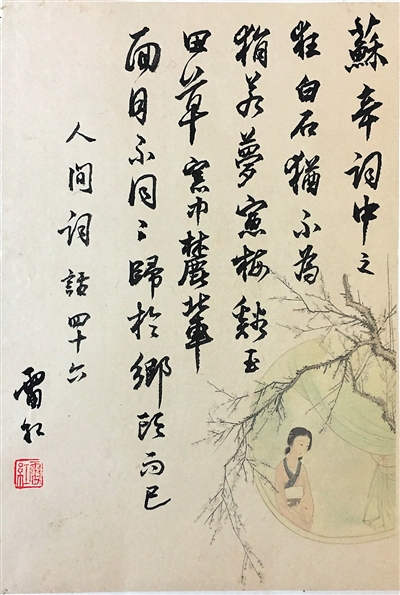 蘇辛詞中之
狂白石猶不為
狷若夢窓梅谿玉
田草窓中麓輩
面目不同〻歸於鄉愿而已
人間詞話四十六